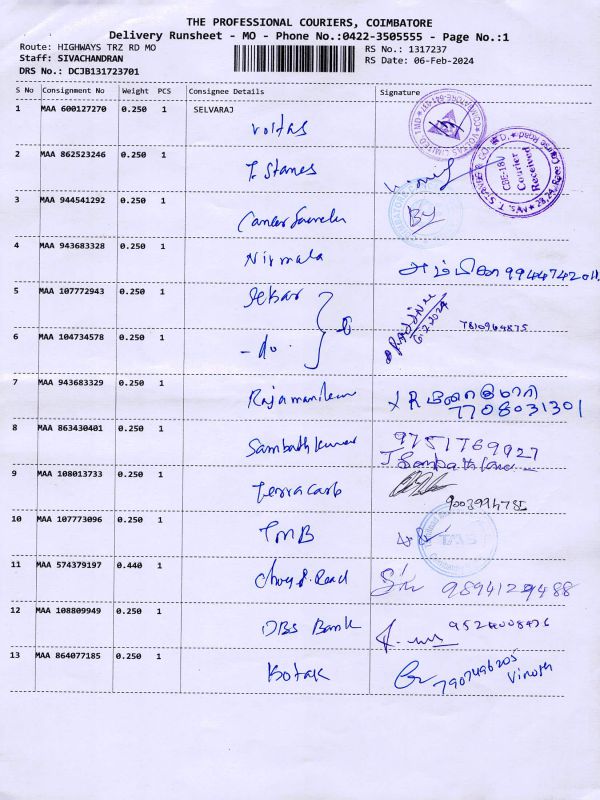 THE PROFESSIONAL COURIERS, COIMBATORE
Delivery Runsheet - MO - Phone No.:0422-3505555 - Page No.:1
Route: HIGHWAYS TRZ RD MO RS No.: 1317237
Staff: SIVACHANDRAN RS Date: 06-Feb-2024
DRS No.: DCJB131723701
S No Consignment No Weight PCS Consignee Details Signature
1 MAA 600127270 0.250 1 SELVARAJ
voltas
2 MAA 862523246 0.250 1
T. Stanes
Courier Received
CBE-18
3 MAA 944541292 0.250 1
4 MAA 943683328 0.250 1
Nirmala
5 MAA 107772943 0.250 1
Sekar
6.2.2024
7810964875
6 MAA 104734578 0.250 1
- do -
7 MAA 943683329 0.250 1
7708031301
8 MAA 863430401 0.250 1
Sambath kumar 9751769927
9 MAA 108013733 0.250 1
Terracarb
9003994785
10 MAA 107773096 0.250 1
TMB
11 MAA 574379197 0.440 1
9894129488
12 MAA 108809949 0.250 1
DBS Bank 9524008476
13 MAA 864077185 0.250 1
Kotak 7907496205
Vinoth